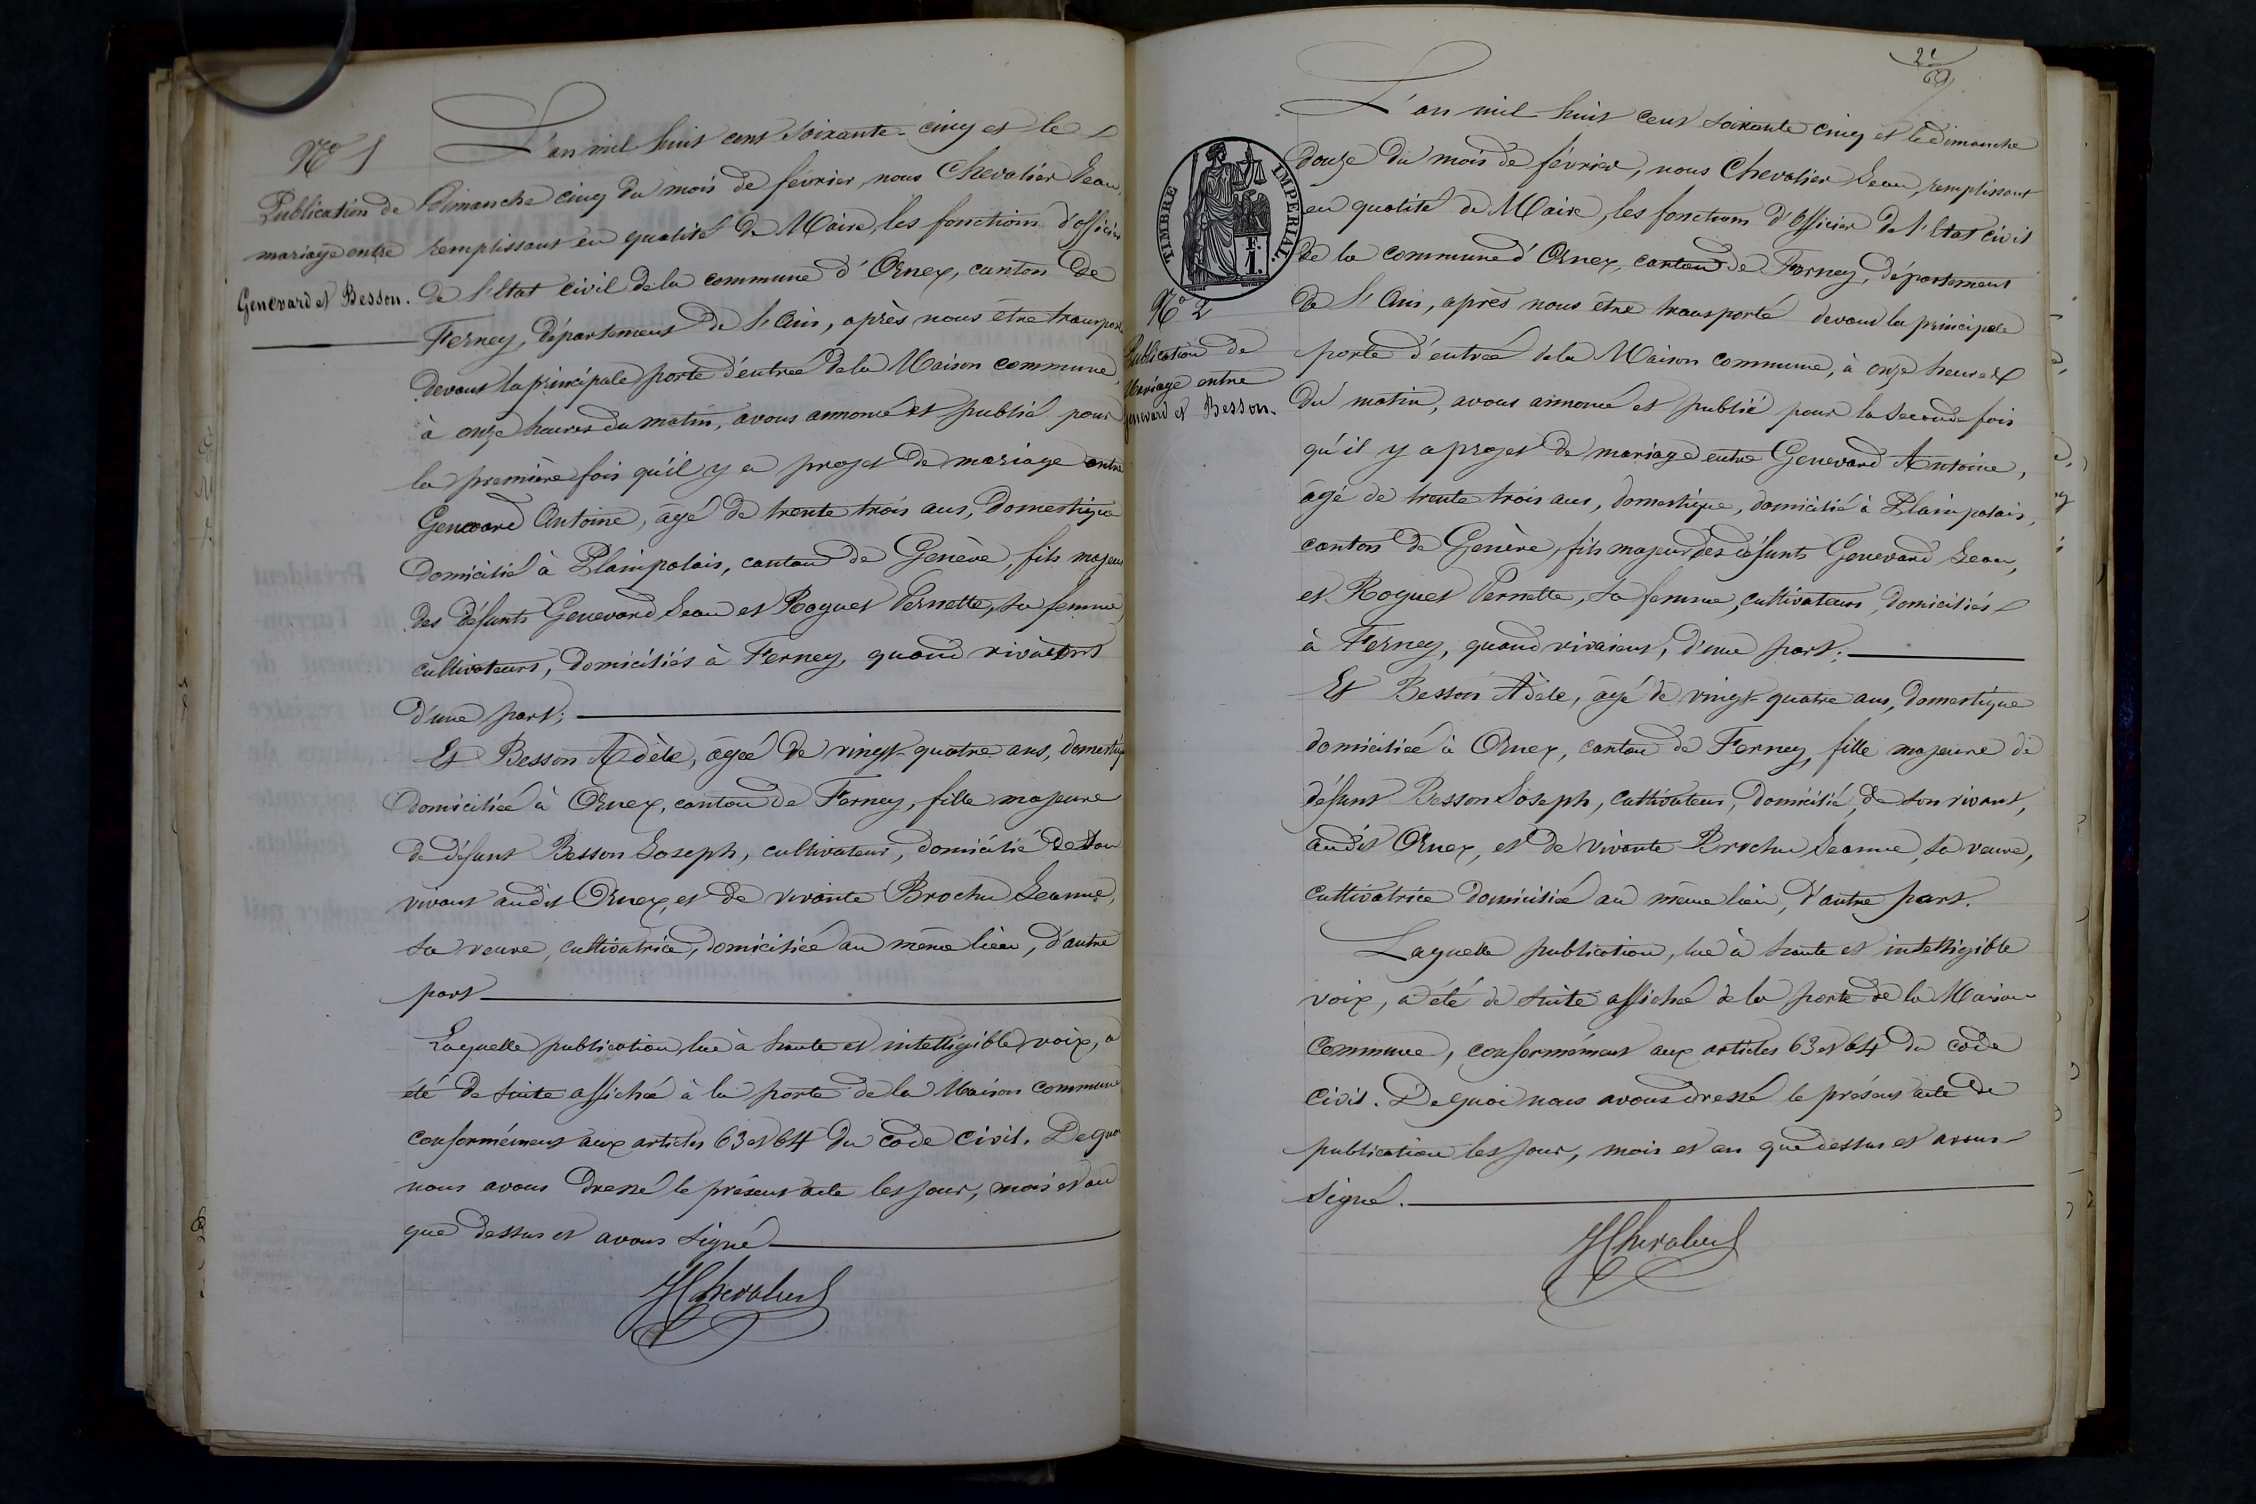 N° 1
Publication de
mariage entre
Genevard et Besson.
L'an mil huit cent soixante-cinq et le
Dimanche cinq du mois de février, nous Chevalier Jean,
remplissant en qualité de Maire, les fonctions d'officier
de l'Etat civil de la commune d'Ornex, canton de
Ferney, département de l'Ain, après nous être transporté
devant la principale porte d'entrée de la Maison commune,
à onze heures du matin, avons annoncé et publié pour
la première fois qu'il y a projet de mariage entre
Genevard Antoine, âgé de trente trois ans, Domestique
Domicilié à Plainpalais, canton de Genève, fils majeur
des défunts Genevard Jean et Roguet Pernette, sa femme,
cultivateurs, domiciliés à Ferney, quand vivaient
d'une part;
Et Besson Adèle, âgée de vingt-quatre ans, domestique
domiciliée à Ornex, canton de Ferney, fille majeure
de défunt Besson Joseph, cultivateur, domicilié de son
vivant audit Ornex, et de vivante Brochu Jeanne,
sa veuve, cultivatrice, domiciliée au même lieu, d'autre
part
Laquelle publication, lue à haute et intelligible voix, a
été de suite affichée à la porte de la Maison commune
conformément aux articles 63 et 64 du code civil. De quoi
nous avons dressé le présent acte les jour, mois et an
que dessus et avons signé
JChevalier
2e
TIMBRE IMPERIAL.
F.
1.
N° 2
Publication de
Mariage entre
Genevard et Besson.
L'an mil huit cent soixante cinq et le dimanche
douze du mois de février, nous Chevalier Jean, remplissant
en qualité de Maire, les fonctions d'officier de l'Etat civil
de la commune d'Ornex, canton de Ferney, département
de l'Ain, après nous être transporté devant la principale
porte d'entrée de la Maison commune, à onze heures
du matin, avons annoncé et publié pour la seconde fois
qu'il y a projet de mariage entre Genevard Antoine,
âgé de trente trois ans, domestique, domicilié à Plainpalais,
canton de Genève, fils majeur des défunts Genevard Jean,
et Roguet Pernette, sa femme, cultivateurs, domiciliés
à Ferney, quand vivaient, d'une part;
Et Besson Adèle, âgé de vingt-quatre ans, domestique
domiciliée à Ornex, canton de Ferney, fille majeure de
défunt Besson Joseph, cultivateur, domicilié, de son vivant,
audit Ornex, et de vivante Brochu Jeanne, sa veuve,
cultivatrice domiciliée au même lieu, d'autre part.
Laquelle publication, lue à haute et intelligible
voix, a été de suite affichée de la porte de la Maison
Commune, conformément aux articles 63 et 64 du code
civil. De quoi nous avons dressé le présent acte de
publication les jour, mois et an que dessus et avons
signé.
JChevalier